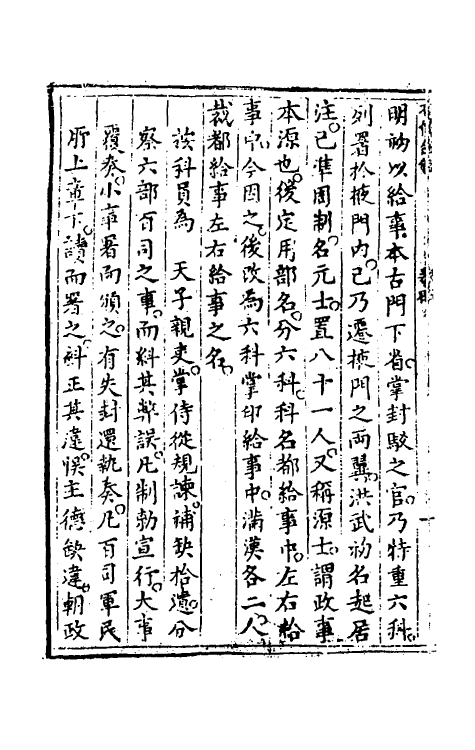 明初以給事本古門下省掌封駁之官乃特重六科
列署於掖門內已乃遷掖門之兩翼洪武初名起居
注已準周制名元士置八十一人又稱源士謂政事
本源也後定用部名分六科科名都給事中左右給
事中今因之後改為六科掌印給事中滿漢各二人
裁都給事左右給事之名
諸科員為　天子親吏掌侍從規諫補缺拾遺分
察六部百司之事而糾其弊誤凡制勅宣行大事
覆奏小事署而頒之有失封還執奏凡百司軍民
所上章下讀而署之糾正其違悞主德缺違朝政